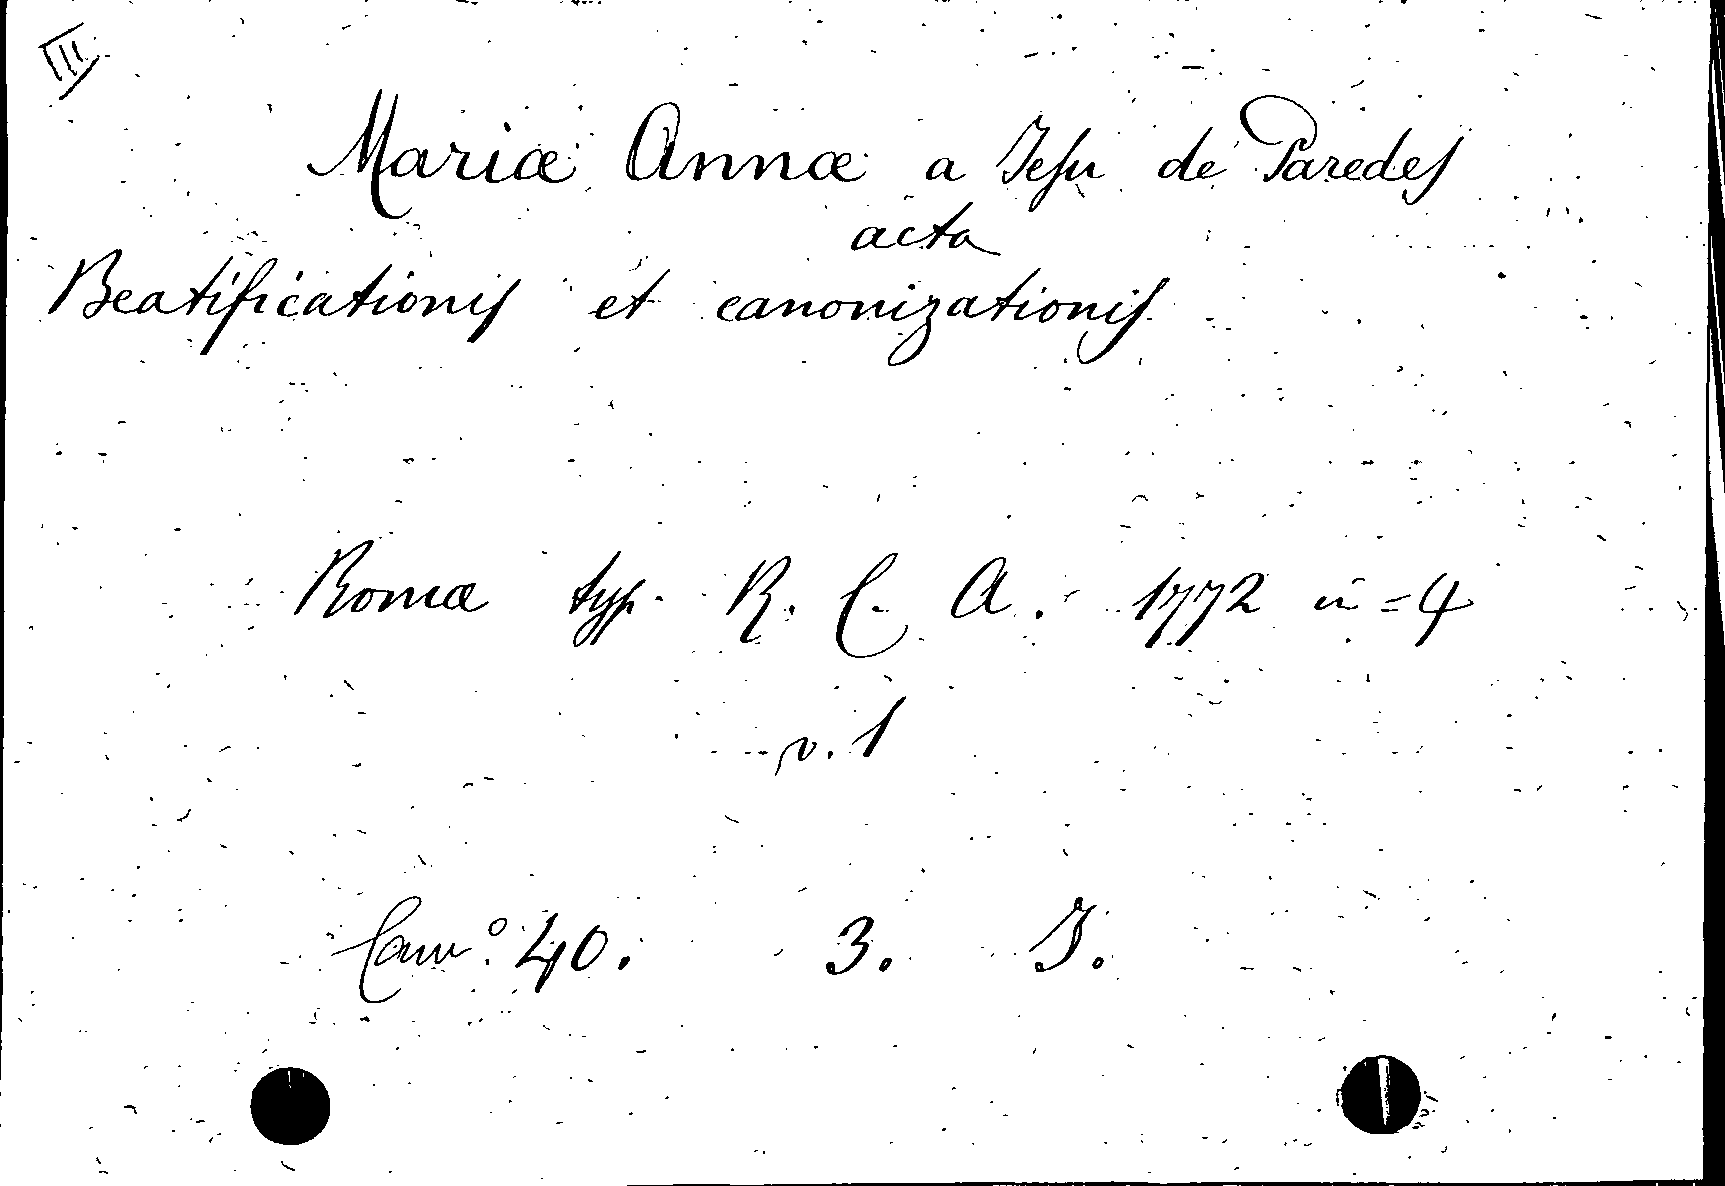 III
Mariæ Annæ a Jesu de Paredes
acta
Beatificationis et canonizationis
Romæ typ. R. C. A. 1772 in=4
v. 1
Cam.° 40. 3. J.